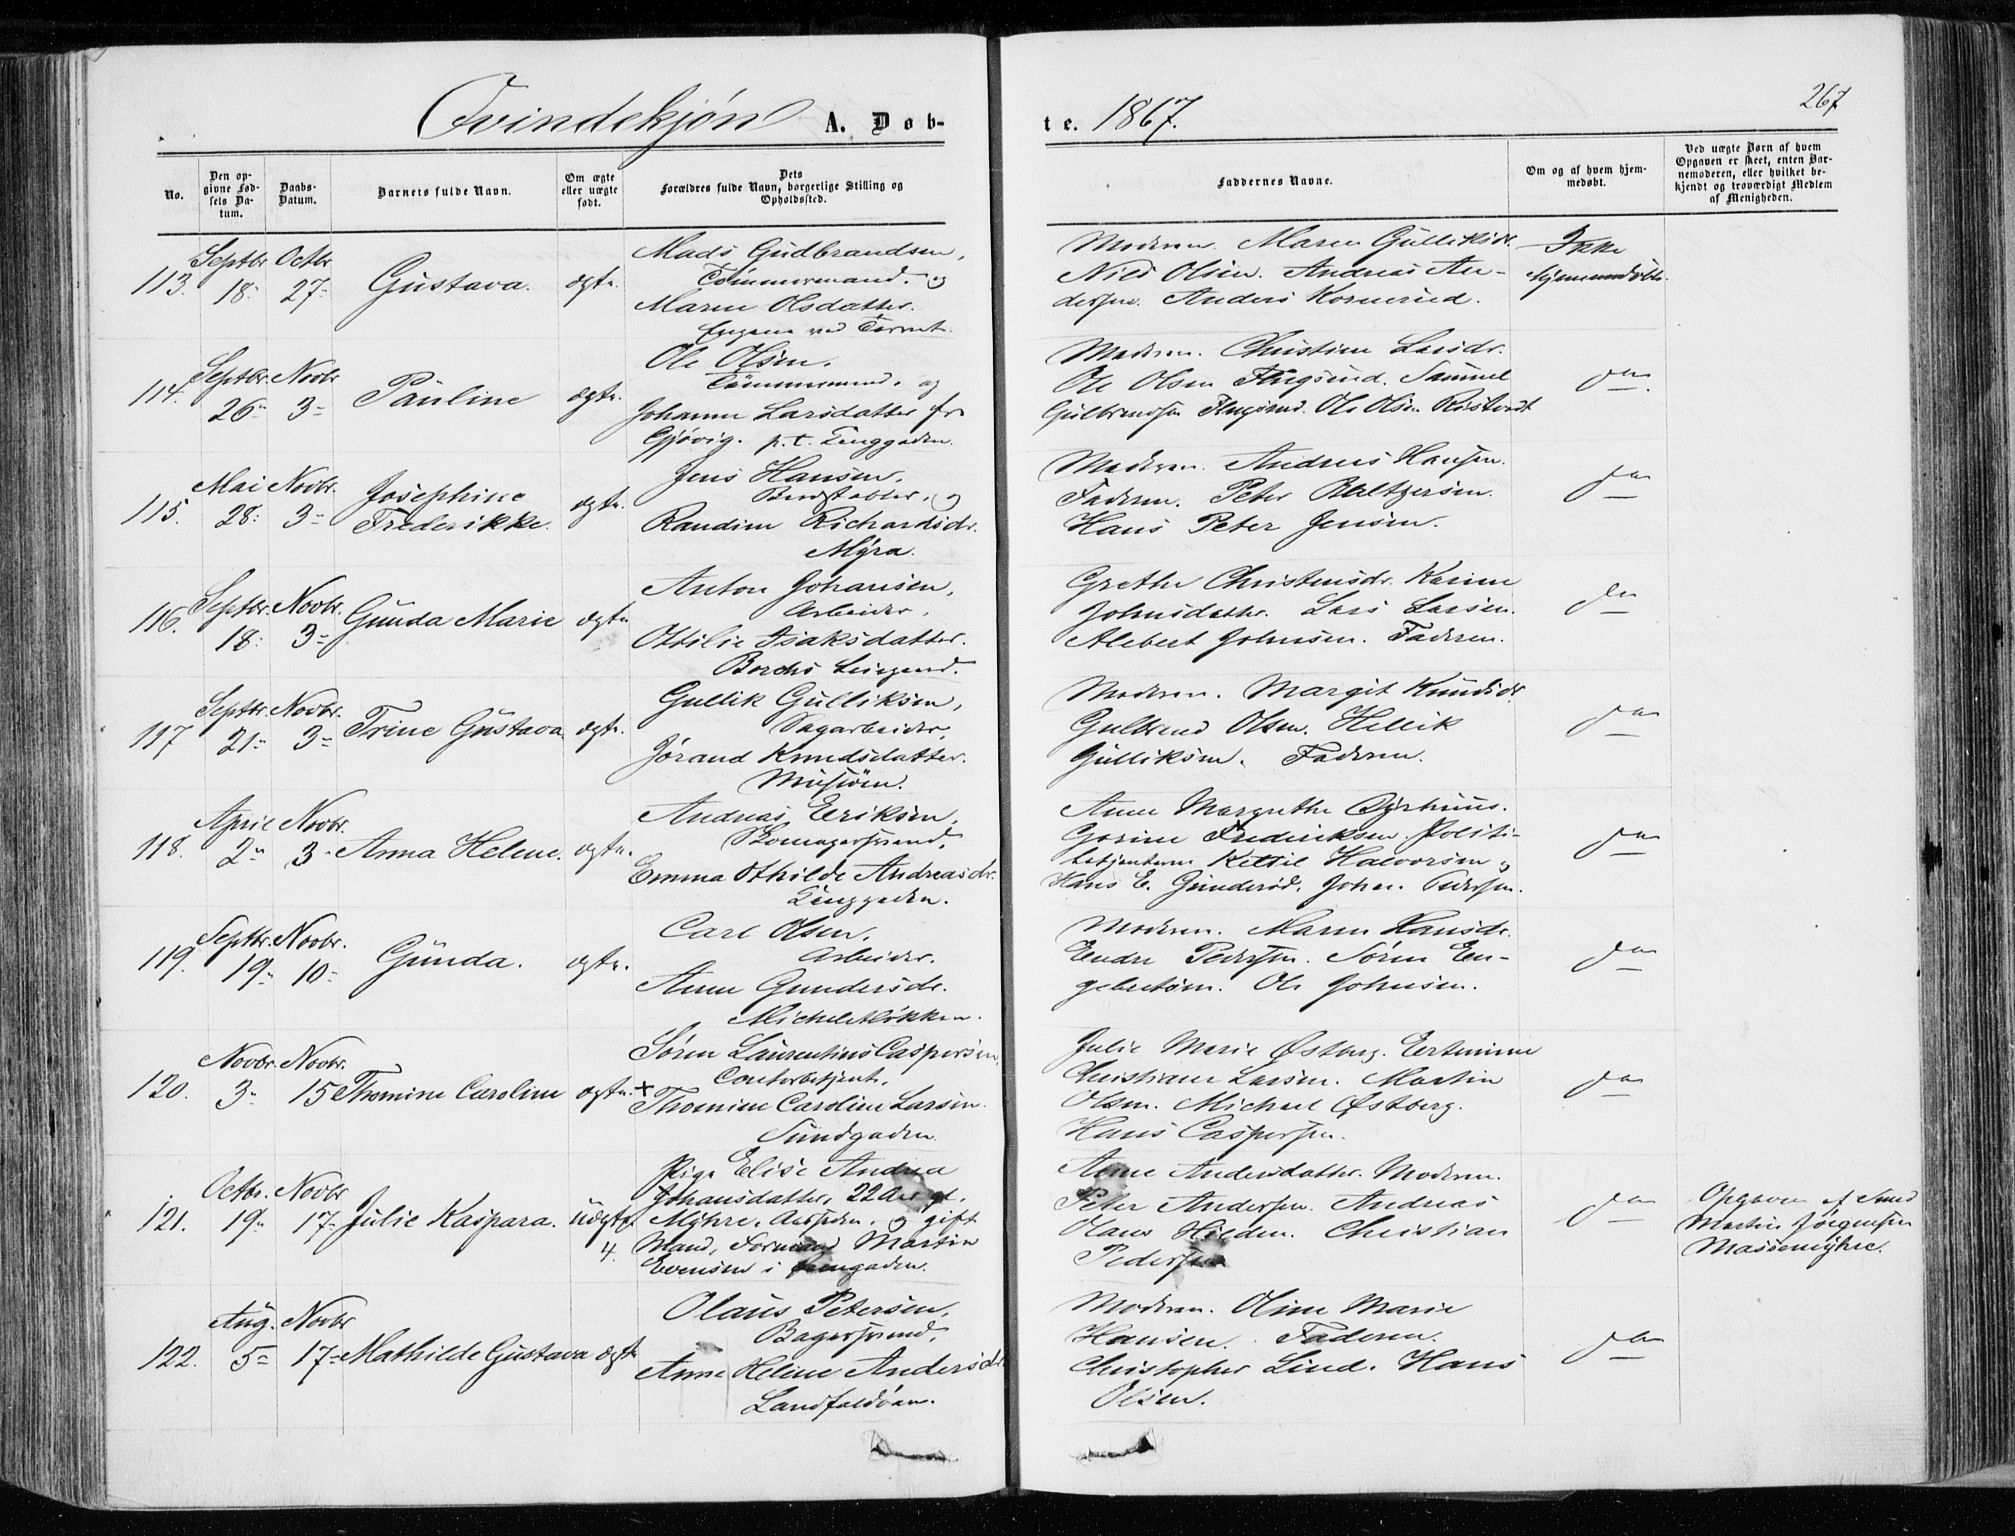 Qvindekjøn A. Døb-
te. 1867.
267
No.
Den op-
givne Fød-
sels Da-
tum.
Daabs-
Datum.
Barnets fulde Navn.
Om ægte
eller uægte
født.
Dets
Forældres fulde Navn, borgerlige Stilling og
Opholdssted.
Faddernes Navne.
Om og af hvem hjem-
medøbt.
Ved uægte Børn af hvem
Opgaven er skeet, enten Bar-
nemoderen, eller hvilket be-
kjendt og troværdigt Medlem
af Menigheden.
113. Septbr 18. Octbr 27. Gustava. ægte.
Mads Gudbrandsen,
Tømmermand. og
Maren Olsdatter.
Engene ved
Moderen. Maren Gulliksdr.
Niels Olsen. Andreas An-
dersen. Anders Kornerud.
Ikke
hjemmedøbt.
114. Septbr. 26 Novbr 3 Pauline ægte.
Ole Olsen.
Tømmermand. og
Johanne Larsdatter fr
Gjøvig. p.t. Tenggaden.
Moderen. Christine Larsdr.
Ole Olsen Samuel
Gulbrandsen Ole Olsen
do
115. Mai 28. Novbr. 3 Josephine
Frederikke. ægte.
Jens Hansen.
og
Randine Richardsdr.
Myra.
Moderen. Andreas Hansen.
Faderen. Peter Baltzersen.
Hans Peter Jensen.
do
116. Septbr. 18. Novbr. 3 Gunda Marie ægte
Anton Johansen,
Arbeider,
Ottilie Isaksdatter.
Borchs Leiegaard.
Grethe Christensdr. Karine
Johnsdatter. Lars Larsen.
Alebert Johnsen. Faderen.
do
117 Septbr. 21 Novbr. 3 Trine Gustava. ægte.
Gullik Gulliksen,
Sagarbeider,
Jørand Knudsdatter.
Moderen. Margit Knudsdr
Gulbrand Olsen. Hellik
Gulliksen. Faderen.
do
118. April 2 Novbr. 3 Anna Helene. ægte.
Andreas Eriksen,
Skomagersvend,
Emma Othilde Andreasdr.
Tenggaden.
Anne Margrethe
Gorine Frederiksen. Politi-
betjentene Kittil Halvorsen og
Hans E. Gunderød. Johan Pedersen.
do
119. Septbr. 19 Novbr. 10 Gunda. ægte.
Carl Olsen,
Arbeider.
Anne Gundersdr.
Micheletløkken.
Moderen. Maren Hansdr.
Endre Pedersen. Søren En-
gebretsen. Ole Johnsen.
do
120. Novbr. 3 Novbr. 15 Thomine Caroline ægte. +
Søren Laurentius Caspersen,
Contorbetjent,
Thomine Caroline Larsen.
Sundgaden.
Julie Marie Østberg.
Christiane Larsen. Martin
Olsen. Michael Østberg.
Hans Caspersen.
do
121. Octbr. 19 Novbr 17 Julie Kaspara. Uægte
4.
Pige Elise Andrea
Johansdatter, 22 Aar gl.
Myhre, og gift
Mand, Formand Martin
Evensen i
Anne Andersdatter. Moderen.
Peter Andersen. Andreas
Olaus Hilden. Christian
Pedersen
do
Opgaven af
Martin Jørgensen
Massemyhre.
122. Aug. 5 Novbr 17 Mathilde Gustava ægte
Olaus Petersen,
Bagersvend,
Anne Helene Andersdr
Landfaldøen.
Moderen. Oline Marie
Hansen. Faderen.
Christopher Lind. Hans
Olsen.
do